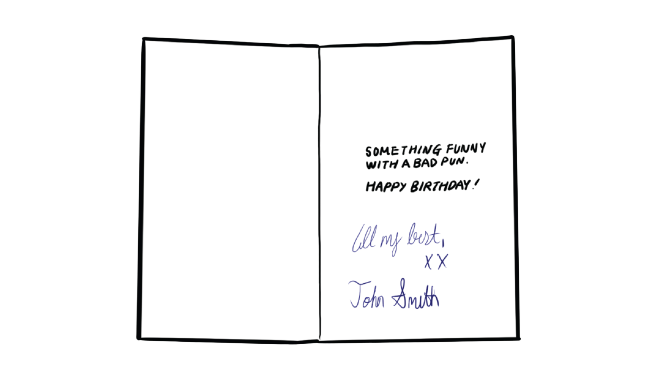 SOMETHING FUNNY
WITH A BAD PUN.
HAPPY BIRTHDAY!
All my best,
XX
John Smith